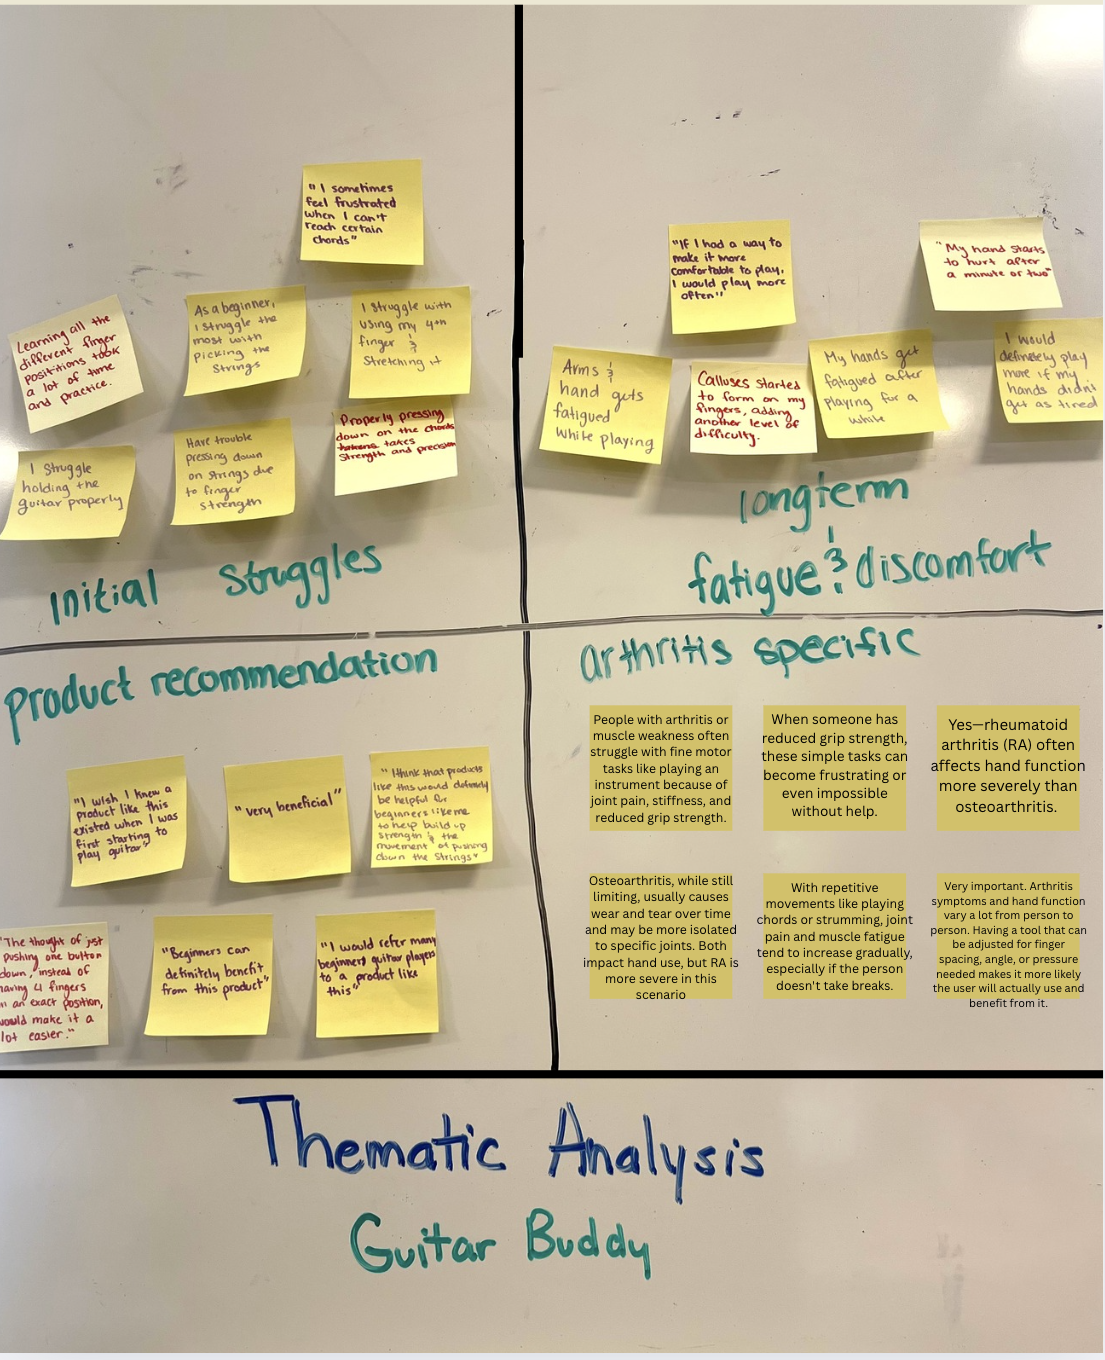 " I sometimes
feel frustrated
when I can't
reach certain
chords"
Learning all the
different finger
posititions took
a lot of time
and practice.
As a beginner,
I struggle the
most with
picking the
Strings
I struggle with
using my 4th
finger &
Stretching it
I Struggle
holding the
guitar properly
Have trouble
pressing down
on strings due
to finger
strength
Properly pressing
down on the chords
takes
strength and precision
Initial Struggles
"If I had a way to
make it more
comfortable to play,
I would play more
often"
"My hand starts
to hurt after
a minute or two"
Arms &
hand gets
fatigued
while playing
Calluses started
to form on my
fingers, adding
another level of
difficulty.
My hands get
fatigued after
playing for a
while
I would
definetely play
more if my
hands didn't
get as tired
longterm
fatigue & discomfort
product recommendation
"I wish I knew a
product like this
existed when I was
first starting to
play guitar"
"very beneficial"
" I think that products
like this would definitely
be helpful for
beginners like me
to help build up
strength & the
movement of pushing
down the strings"
"The thought of just
pushing one button
down, instead of
having 4 fingers
in an exact position,
would make it a
lot easier."
"Beginners can
definitely benefit
from this product"
"I would refer many
beginners guitar players
to a product like
this"
arthritis specific
People with arthritis or
muscle weakness often
struggle with fine motor
tasks like playing an
instrument because of
joint pain, stiffness, and
reduced grip strength.
When someone has
reduced grip strength,
these simple tasks can
become frustrating or
even impossible
without help.
Yes—rheumatoid
arthritis (RA) often
affects hand function
more severely than
osteoarthritis.
Osteoarthritis, while still
limiting, usually causes
wear and tear over time
and may be more isolated
to specific joints. Both
impact hand use, but RA is
more severe in this
scenario
With repetitive
movements like playing
chords or strumming, joint
pain and muscle fatigue
tend to increase gradually,
especially if the person
doesn't take breaks.
Very important. Arthritis
symptoms and hand function
vary a lot from person to
person. Having a tool that can
be adjusted for finger
spacing, angle, or pressure
needed makes it more likely
the user will actually use and
benefit from it.
Thematic Analysis
Guitar Buddy